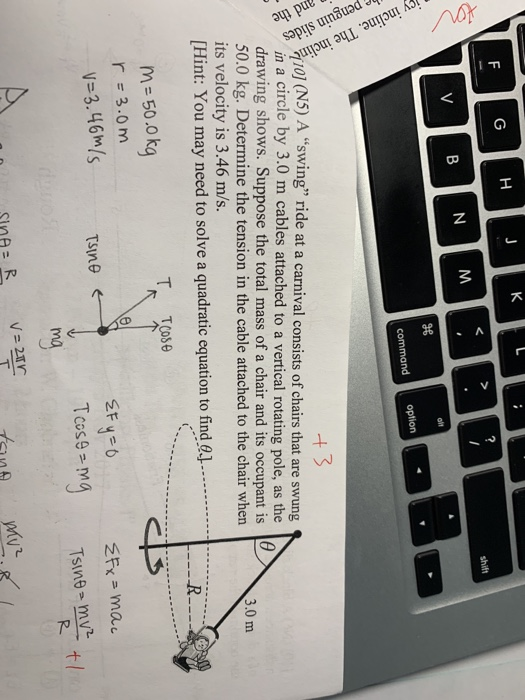 icy incline. The incline
the penguin slides
and the
+3
[10] (N5) A "swing" ride at a carnival consists of chairs that are swung
in a circle by 3.0 m cables attached to a vertical rotating pole, as the
drawing shows. Suppose the total mass of a chair and its occupant is
50.0 kg. Determine the tension in the cable attached to the chair when
its velocity is 3.46 m/s.
[Hint: You may need to solve a quadratic equation to find θ.]
θ
3.0 m
R
m = 50.0 kg
r = 3.0 m
v = 3.46 m/s
T
Tcosθ
θ
Tsinθ
mg
ΣFy = 0
Tcosθ = mg
ΣFx = mac
Tsinθ = mv²/R
+1
sinθ = R
v = 2πr/T
Tsinθ
mv²
F
G
H
J
K
L
;
V
B
N
M
<
,
>
.
?
/
shift
⌘
command
alt
option